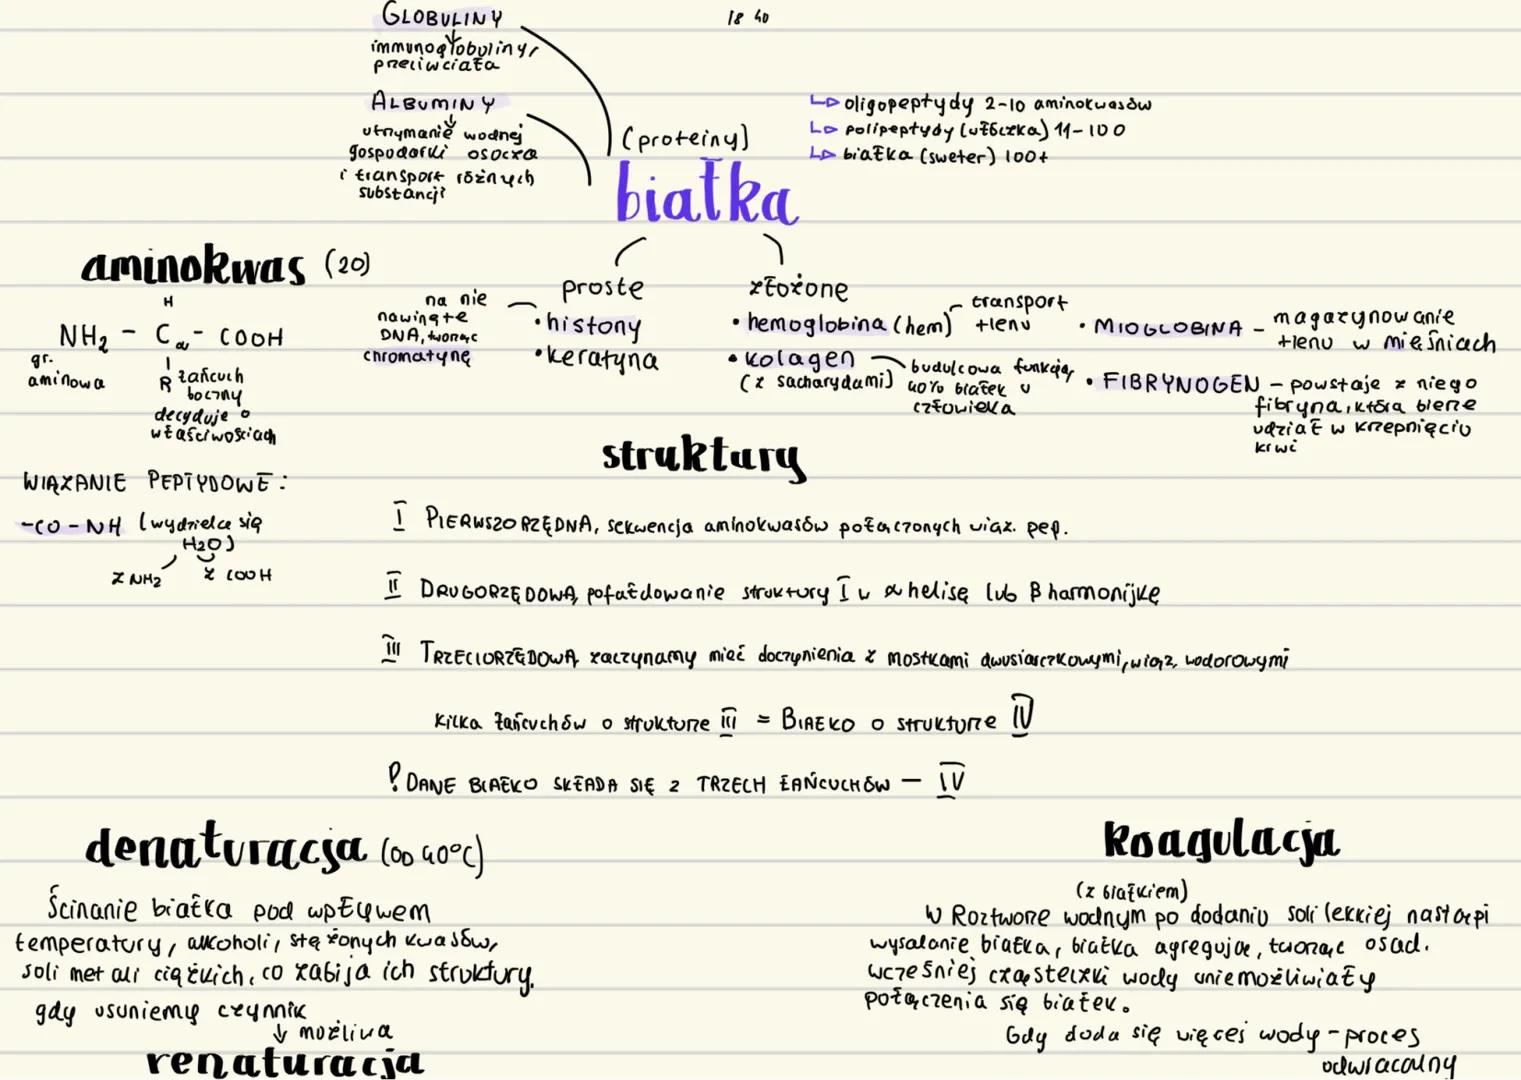 GLOBULINY
immunoglobuliny,
przeciwciała
18 40
ALBUMINY
utrzymanie wodnej
gospodarki osocza
i transport różnych
substancji
↳ oligopeptydy 2-10 aminokwasów
↳ polipeptydy (włóczka) 11-100
↳ białka (sweter) 100+
(proteiny)
białka
aminokwas (20)
H
NH₂ - Cα - COOH
gr.
aminowa
R łańcuch
boczny
decyduje o
właściwościach
proste
na nie
nawinęte
DNA, tworząc
chromatynę
• histony
• keratyna
złożone
• hemoglobina (hem)
transport
tlenu
• kolagen
(z sacharydami)
budulcowa funkcja,
40% białek u
człowieka
• MIOGLOBINA - magazynowanie
tlenu w mięśniach
• FIBRYNOGEN - powstaje z niego
fibryna, która bierze
udział w krzepnięciu
krwi
WIĄZANIE PEPTYDOWE:
-CO-NH (wydziela się
H₂O)
z NH₂ z COOH
struktury
I PIERWSZORZĘDNA, sekwencja aminokwasów połączonych wiąz. pep.
II DRUGORZĘDOWA, pofałdowanie struktury I w α helisę lub β harmonijkę
III TRZECIORZĘDOWA zaczynamy mieć doczynienia z mostkami dwusiarczkowymi, wiąz. wodorowymi
kilka łańcuchów o strukturze III = BIAŁKO o strukturze IV
! DANE BIAŁKO SKŁADA SIĘ Z TRZECH ŁAŃCUCHÓW - IV
denaturacja (OD 40°C)
Ścinanie białka pod wpływem
temperatury, alkoholi, stężonych kwasów,
soli metali ciężkich, co zabija ich struktury.
gdy usuniemy czynnik
↓ możliwa
renaturacja
koagulacja
(z białkiem)
W Roztworze wodnym po dodaniu soli lekkiej nastąpi
wysalanie białka, białka agregują, tworząc osad.
wcześniej cząsteczki wody uniemożliwiały
połączenia się białek.
Gdy doda się więcej wody - proces
odwracalny